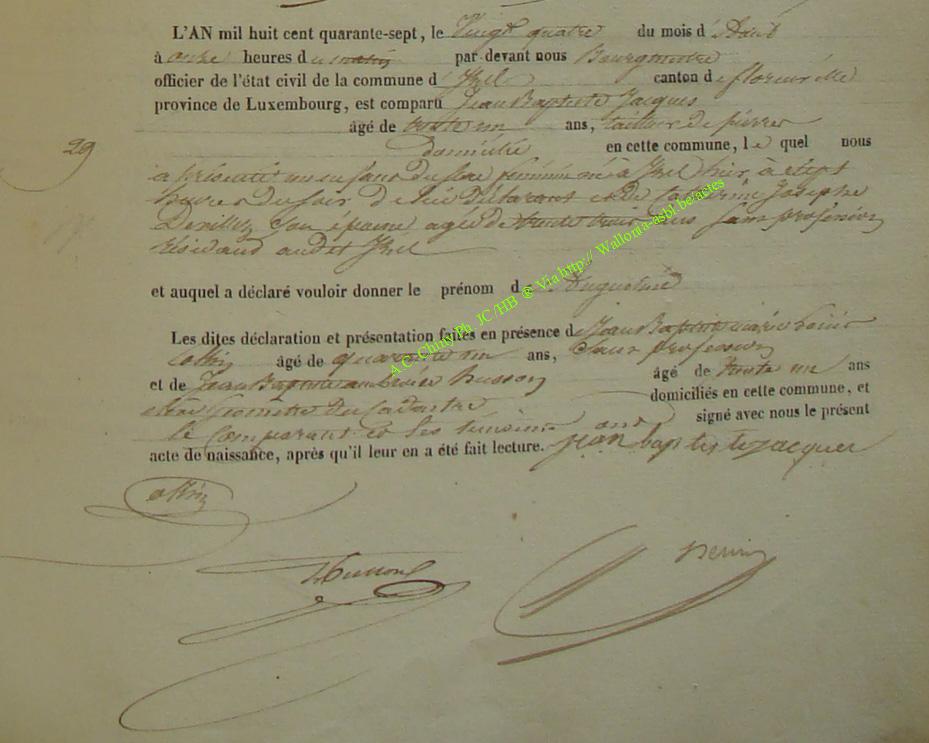 L'AN mil huit cent quarante-sept, le Vingt quatre du mois d'Avril
à onze heures du matin par devant nous Bourgmestre
officier de l'état civil de la commune d'Izel canton de florenville
province de Luxembourg, est comparu Jean Baptiste Jacques
âgé de trente un ans, tailleur de pierres
29
domicilié en cette commune, le quel nous
a présenté un enfant du sexe féminin né à Izel hier à sept
heures du soir de lui Déclarant et de Josephe
son épouse agée de trente trois ans sans profession
résidant audit Izel
et auquel a déclaré vouloir donner le prénom de Augustine
Les dites déclaration et présentation faites en présence de Jean Baptiste
âgé de quarante un ans, sans profession
et de Jean Baptiste Husson âgé de trente un ans
Géomètre du Cadastre domiciliés en cette commune, et
le Comparant et les témoins ont signé avec nous le présent
acte de naissance, après qu'il leur en a été fait lecture. jean baptiste jacques
Husson
A.C. Chiny Ph. JC/HB ® Via http:// Wallonia-asbl.be/actes